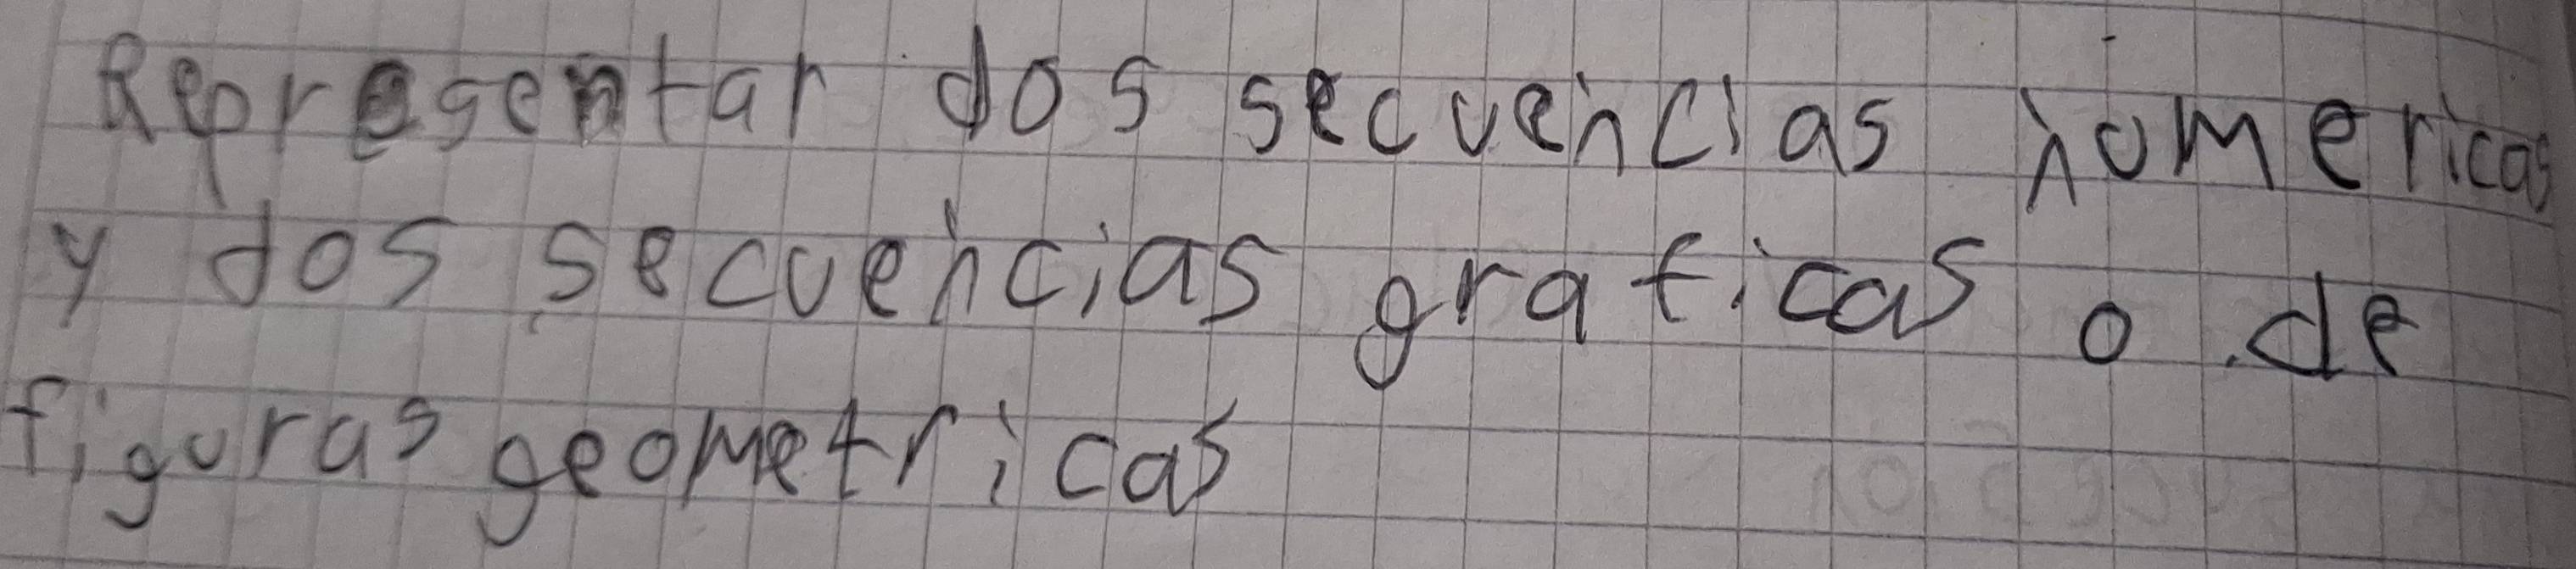 Representar dos secuencias nomericas
y dos secuencias graficas o de
figuras geometricas